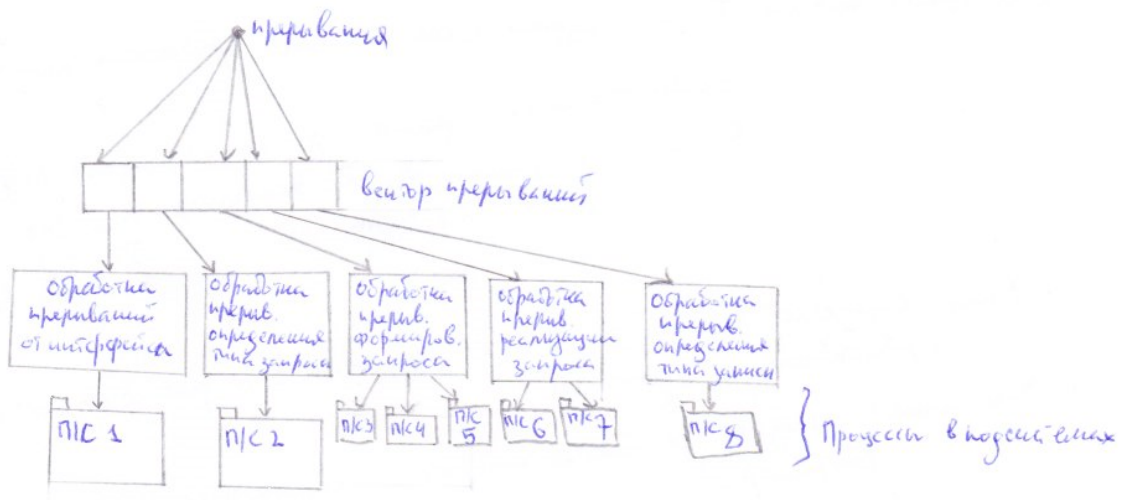 прерывания
вектор прерываний
Обработка
прерываний
от интерфейса
Обработка
прерыв.
определения
типа запроса
Обработка
прерыв.
формиров.
запроса
Обработка
прерыв.
реализации
запроса
Обработка
прерыв.
определения
типа записи
П/С 1
П/С 2
П/С 3
П/С 4
П/С
5
П/С 6
П/С 7
П/С 8
Процессы в подсистемах